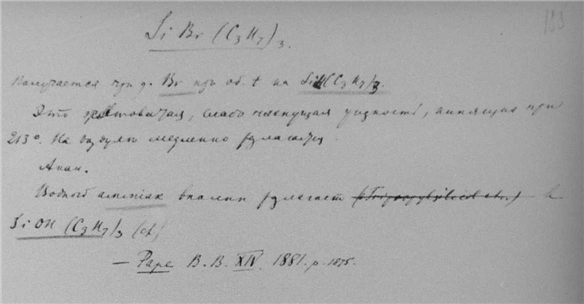 Si Br (C3H7)3.
Получается при д. Br при об. t на SiH(C3H7)3
Это желтоватая, слабо пахнущая жидкость, кипящая при
213°. На воздухе медленно разлагается
Анал.
Водный аммиак вполне разлагает в
SiOH (C3H7)3
— Pape B. B. XIV. 1881. p. 1875.